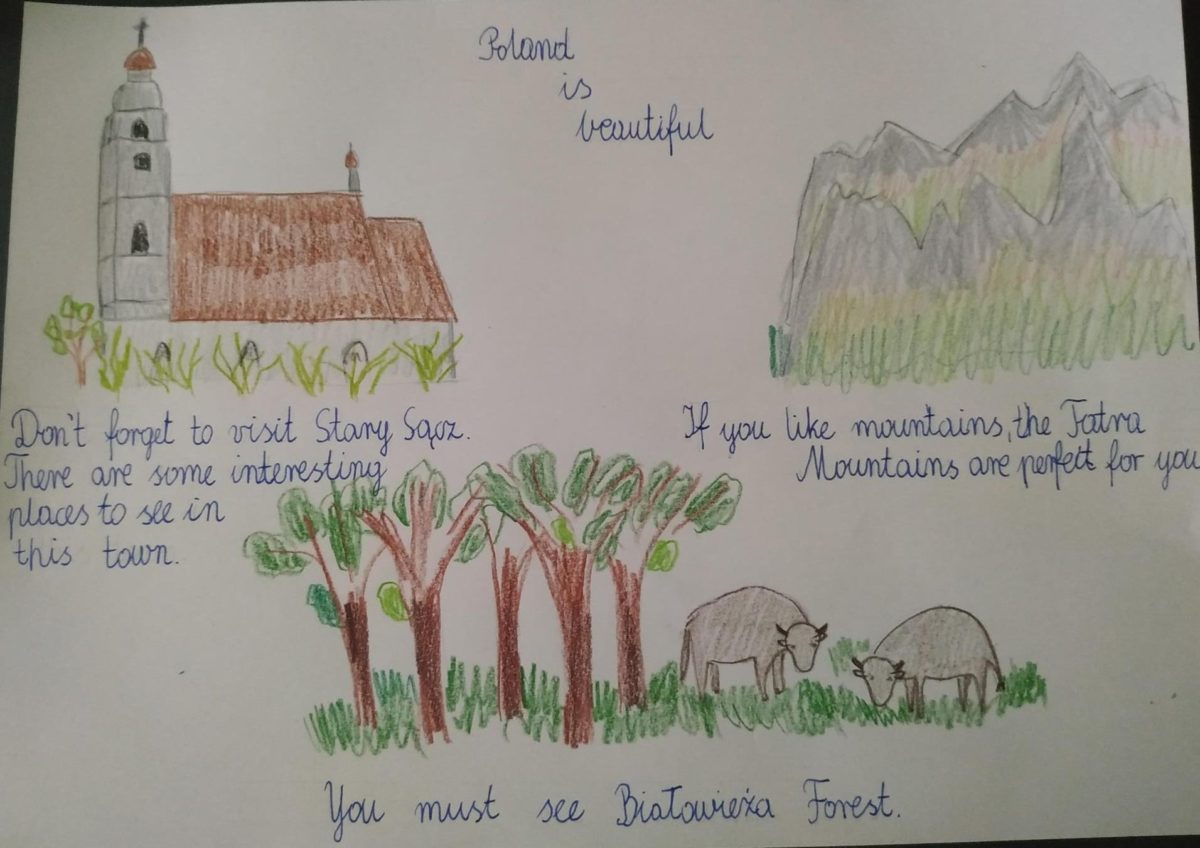 Poland
is
beautiful
Don't forget to visit Stary Sącz.
There are some interesting
places to see in
this town.
If you like mountains, the Tatra
Mountains are perfect for you
You must see Białowieża Forest.